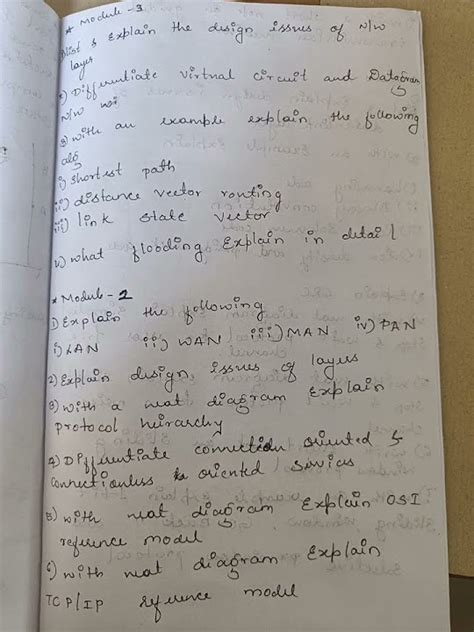 * Module - 3
1) list & Explain the design issues of N/W
layer
2) Differentiate virtual circuit and Datagram
N/w
3) with an example explain the following
alg
i) shortest path
ii) distance vector routing
iii) link state vector
4) what flooding Explain in detail
* Module - 2
1) Explain the following
i) LAN ii) WAN iii) MAN iv) PAN
2) Explain design issues of layers
3) with a neat diagram Explain
protocol heirarchy
4) Differentiate connection oriented &
Connectionless oriented services
5) with neat diagram Explain OSI
reference model
6) with neat diagram Explain
TCP/IP reference model